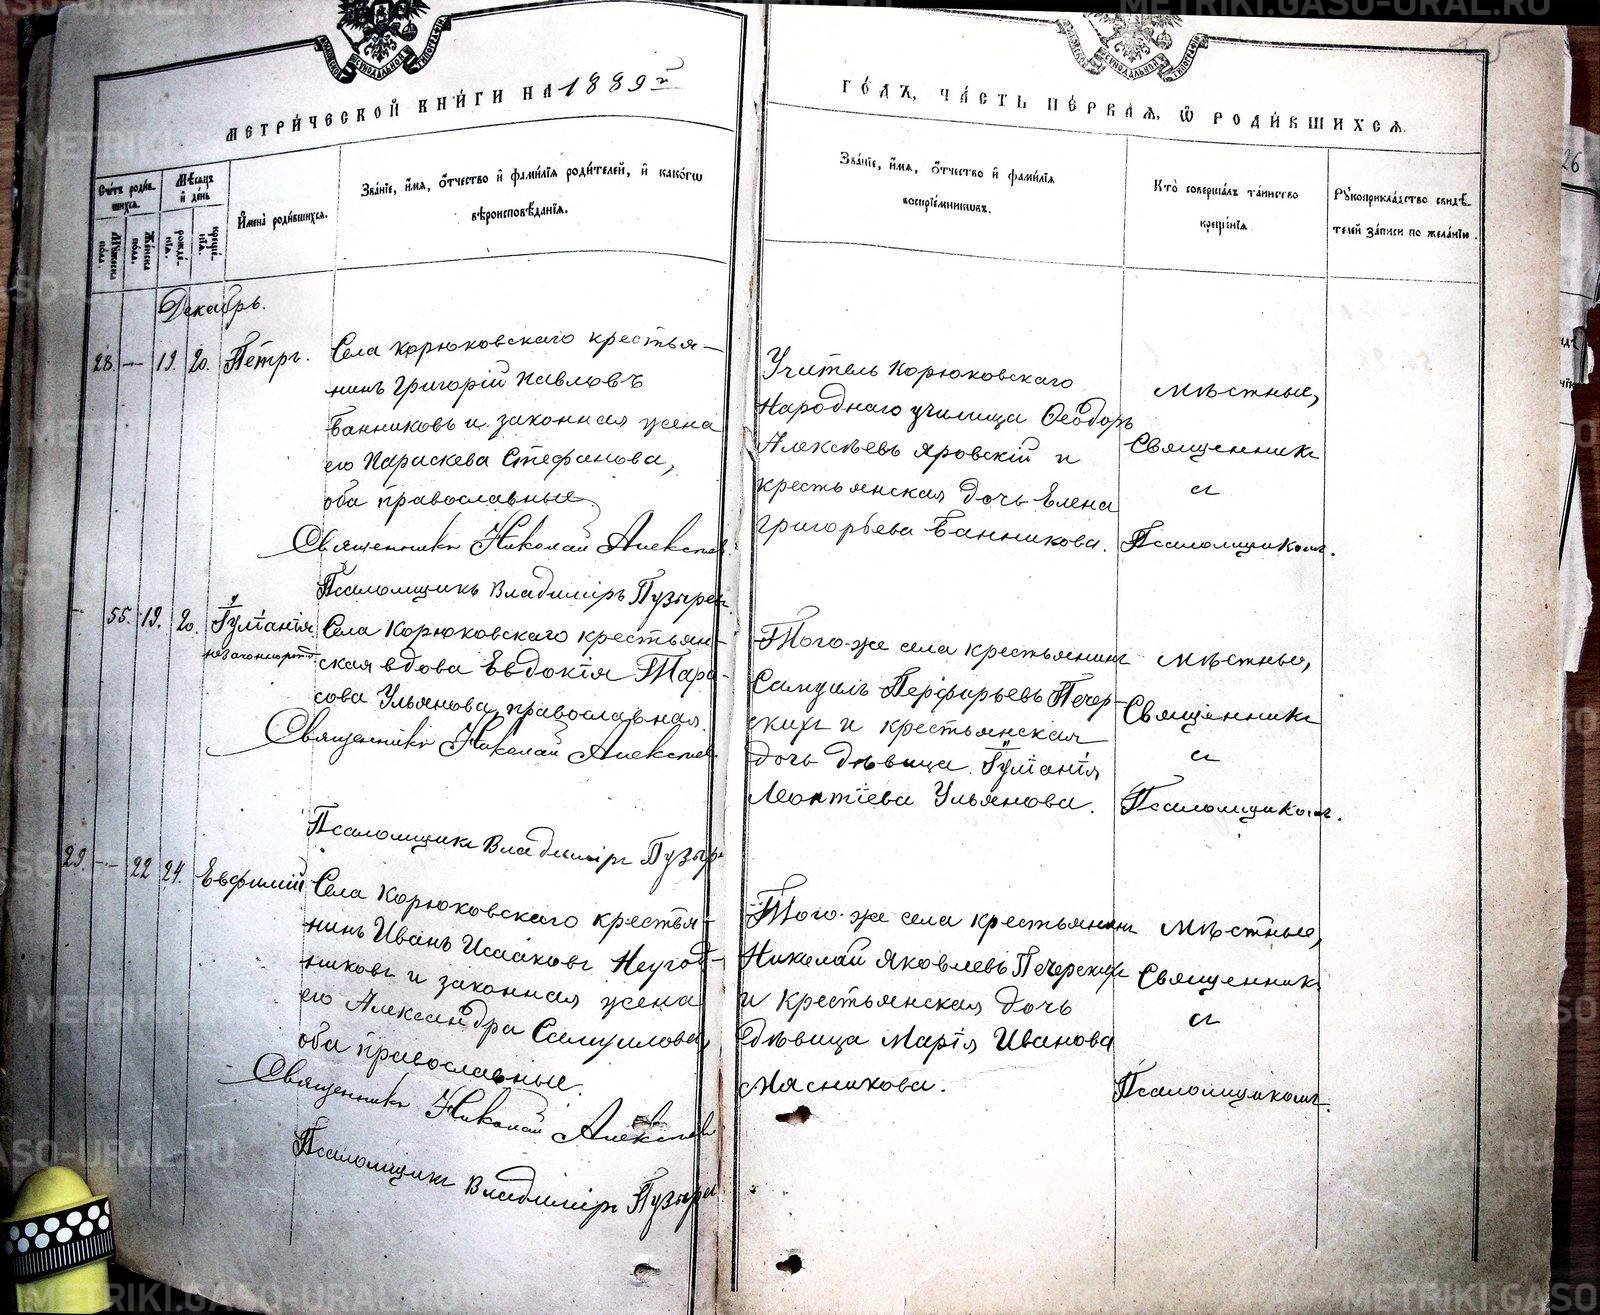 МЕТРИ́ЧЕСКОЙ КНИ́ГИ НА 1889й
ГО́ДЪ, ЧА́СТЬ ПЕ́РВАѦ, Ѽ РОДИ́ВШИХСѦ
Сче́тъ роди́в-
шихся.
Мѣ́сяцъ
и де́нь
Му́жеска
по́ла.
Же́нска
по́ла.
рожде́-
нїѧ.
креще́-
нїѧ.
Имена̀ роди́вшихся.
Зва́нїе, и́мя, о́тчество и фами́лїя роди́телей, и како́гѡ
вѣроисповѣ́данїя.
Зва́нїе, и́мя, о́тчество и фами́лїя
воспрїе́мниковъ.
Кто̀ соверша́лъ та́инство
креще́нїя
Рꙋкоприкла́дство свидѣ́-
телей за́писи по жела́нїю.
Декабрь.
28. — 19. 20. Петръ.
Села Корюковскаго крестья-
нинъ Григорій Павловъ
Банниковъ и законная жена
его Параскева Стефанова,
оба православные
Священникъ Николай Алексѣев
Псаломщикъ Владиміръ Пузырев
Учитель Корюковскаго
Народнаго училища Ѳеодоръ
Алексѣевъ Яровскій и
крестьянская дочь Елена
Григорьева Банникова.
Мѣстные,
Священникъ
съ
Псаломщикомъ.
- 55. 19. 20. Іуліанія
незаконнорожд.
Села Корюковскаго крестьян-
ская вдова Евдокія Тара-
сова Ульянова, православная.
Священникъ Николай Алексѣев
Псаломщикъ Владиміръ Пузыр
Того-же села крестьянинъ
Самуилъ Перфирьевъ Печер-
скихъ и крестьянская
дочь дѣвица Іуліанія
Леонтіева Ульянова.
Мѣстные,
Священникъ
съ
Псаломщикомъ.
29. — 22 24. Евфимій
Села Корюковскаго крестья-
нинъ Иванъ Исааковъ Неугод-
никовъ и законная жена
его Александра Самуилова,
оба православные.
Священникъ Николай Алексѣев
Псаломщикъ Владиміръ Пузырев
Того-же села крестьянинъ
Николай Яковлевъ Печерскихъ
и крестьянская дочь
дѣвица Марія Иванова
Мясникова.
Мѣстные,
Священникъ
съ
Псаломщикомъ.
26
METRIKI.GASO-URAL.RU